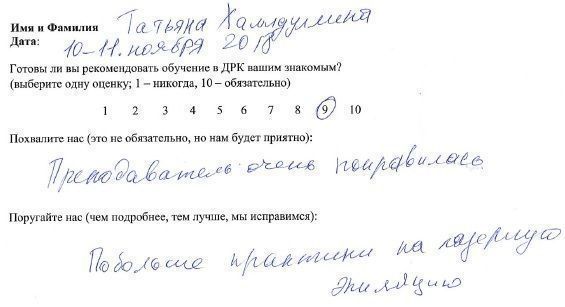 Имя и Фамилия Татьяна
Дата: 10-11. ноября 2018
Готовы ли вы рекомендовать обучение в ДРК вашим знакомым?
(выберите одну оценку; 1 – никогда, 10 – обязательно)
1 2 3 4 5 6 7 8 9 10
Похвалите нас (это не обязательно, но нам будет приятно):
Преподаватель очень понравилась
Поругайте нас (чем подробнее, тем лучше, мы исправимся):
Побольше практики на лазерную
эпиляцию